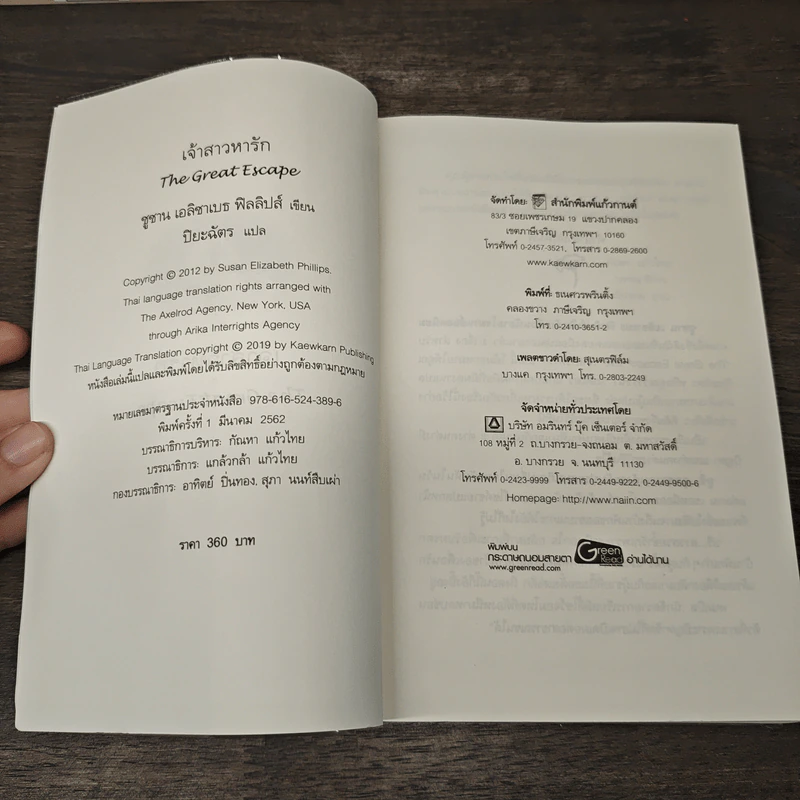 เจ้าสาวหารัก
The Great Escape
ซูซาน เอลิซาเบธ ฟิลลิปส์ เขียน
ปิยะฉัตร แปล
Copyright © 2012 by Susan Elizabeth Phillips.
Thai language translation rights arranged with
The Axelrod Agency, New York, USA
through Arika Interrights Agency
Thai Language Translation copyright © 2019 by Kaewkarn Publishing
หนังสือเล่มนี้แปลและพิมพ์โดยได้รับลิขสิทธิ์อย่างถูกต้องตามกฎหมาย
หมายเลขมาตรฐานประจำหนังสือ 978-616-524-389-6
พิมพ์ครั้งที่ 1 มีนาคม 2562
บรรณาธิการบริหาร: กัณหา แก้วไทย
บรรณาธิการ: แกล้วกล้า แก้วไทย
กองบรรณาธิการ: อาทิตย์ ปิ่นทอง, สุภา นนท์สืบเผ่า
ราคา 360 บาท
จัดทำโดย: สำนักพิมพ์แก้วกานต์
83/3 ซอยเพชรเกษม 19 แขวงปากคลอง
เขตภาษีเจริญ กรุงเทพฯ 10160
โทรศัพท์ 0-2457-3521, โทรสาร 0-2869-2600
www.kaewkarn.com
พิมพ์ที่: ธเนศวรพรินติ้ง
คลองขวาง ภาษีเจริญ กรุงเทพฯ
โทร. 0-2410-3651-2
เพลตขาวดำโดย: สุเนตรฟิล์ม
บางแค กรุงเทพฯ โทร. 0-2803-2249
จัดจำหน่ายทั่วประเทศโดย
บริษัท อมรินทร์ บุ๊ค เซ็นเตอร์ จำกัด
108 หมู่ที่ 2 ถ.บางกรวย-จงถนอม ต. มหาสวัสดิ์
อ. บางกรวย จ. นนทบุรี 11130
โทรศัพท์ 0-2423-9999 โทรสาร 0-2449-9222, 0-2449-9500-6
Homepage: http://www.naiin.com
พิมพ์บน
กระดาษถนอมสายตา Green Read อ่านได้นาน
www.greenread.com